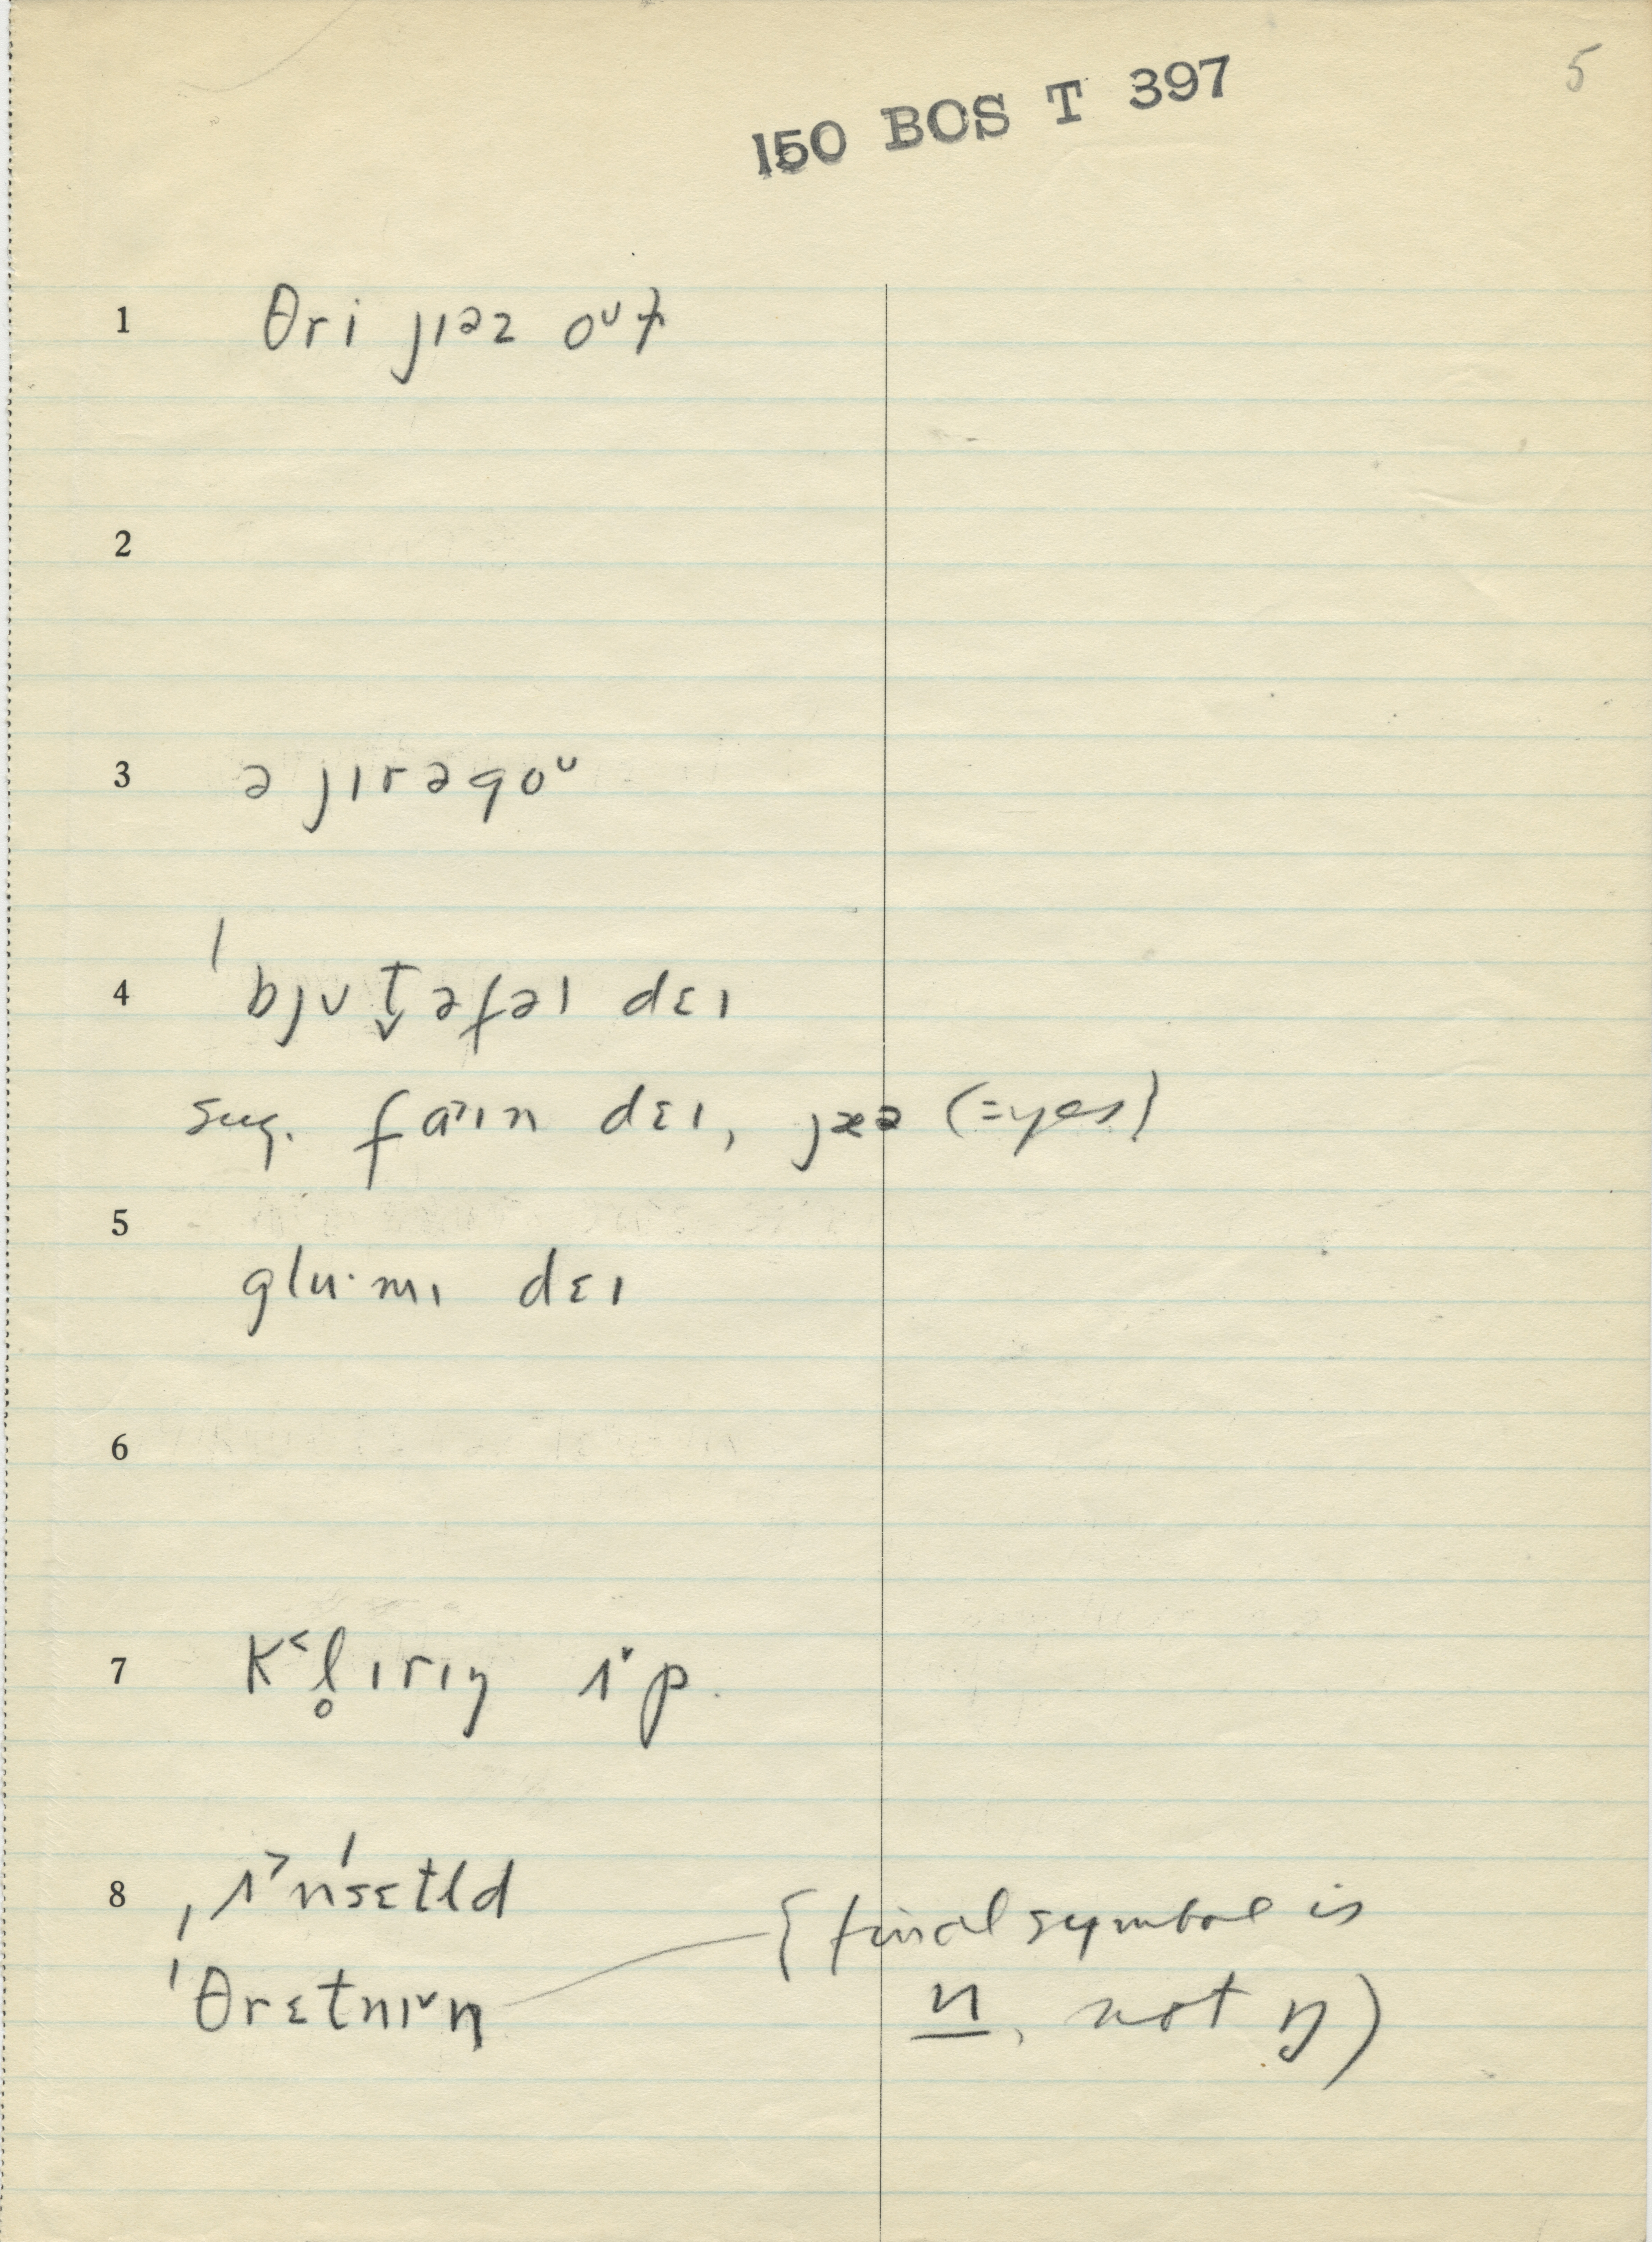 5
150 BOS T 397
1 θri jɪəz oᴜɫ
2
3 ə jɪrəgoᴜ
4 ˈbjʊt̬əfəl dɛɪ
sug. fa˃ɪn dɛɪ, jæə (=yes)
5
glu·mɪ dɛɪ
6
7 K˂l̥ɪrɪŋ ʌ˅p.
8 ˌʌ˃nˈsɛtld
ˈθrɛtnɪ˅n (final symbol is
n, not ŋ)